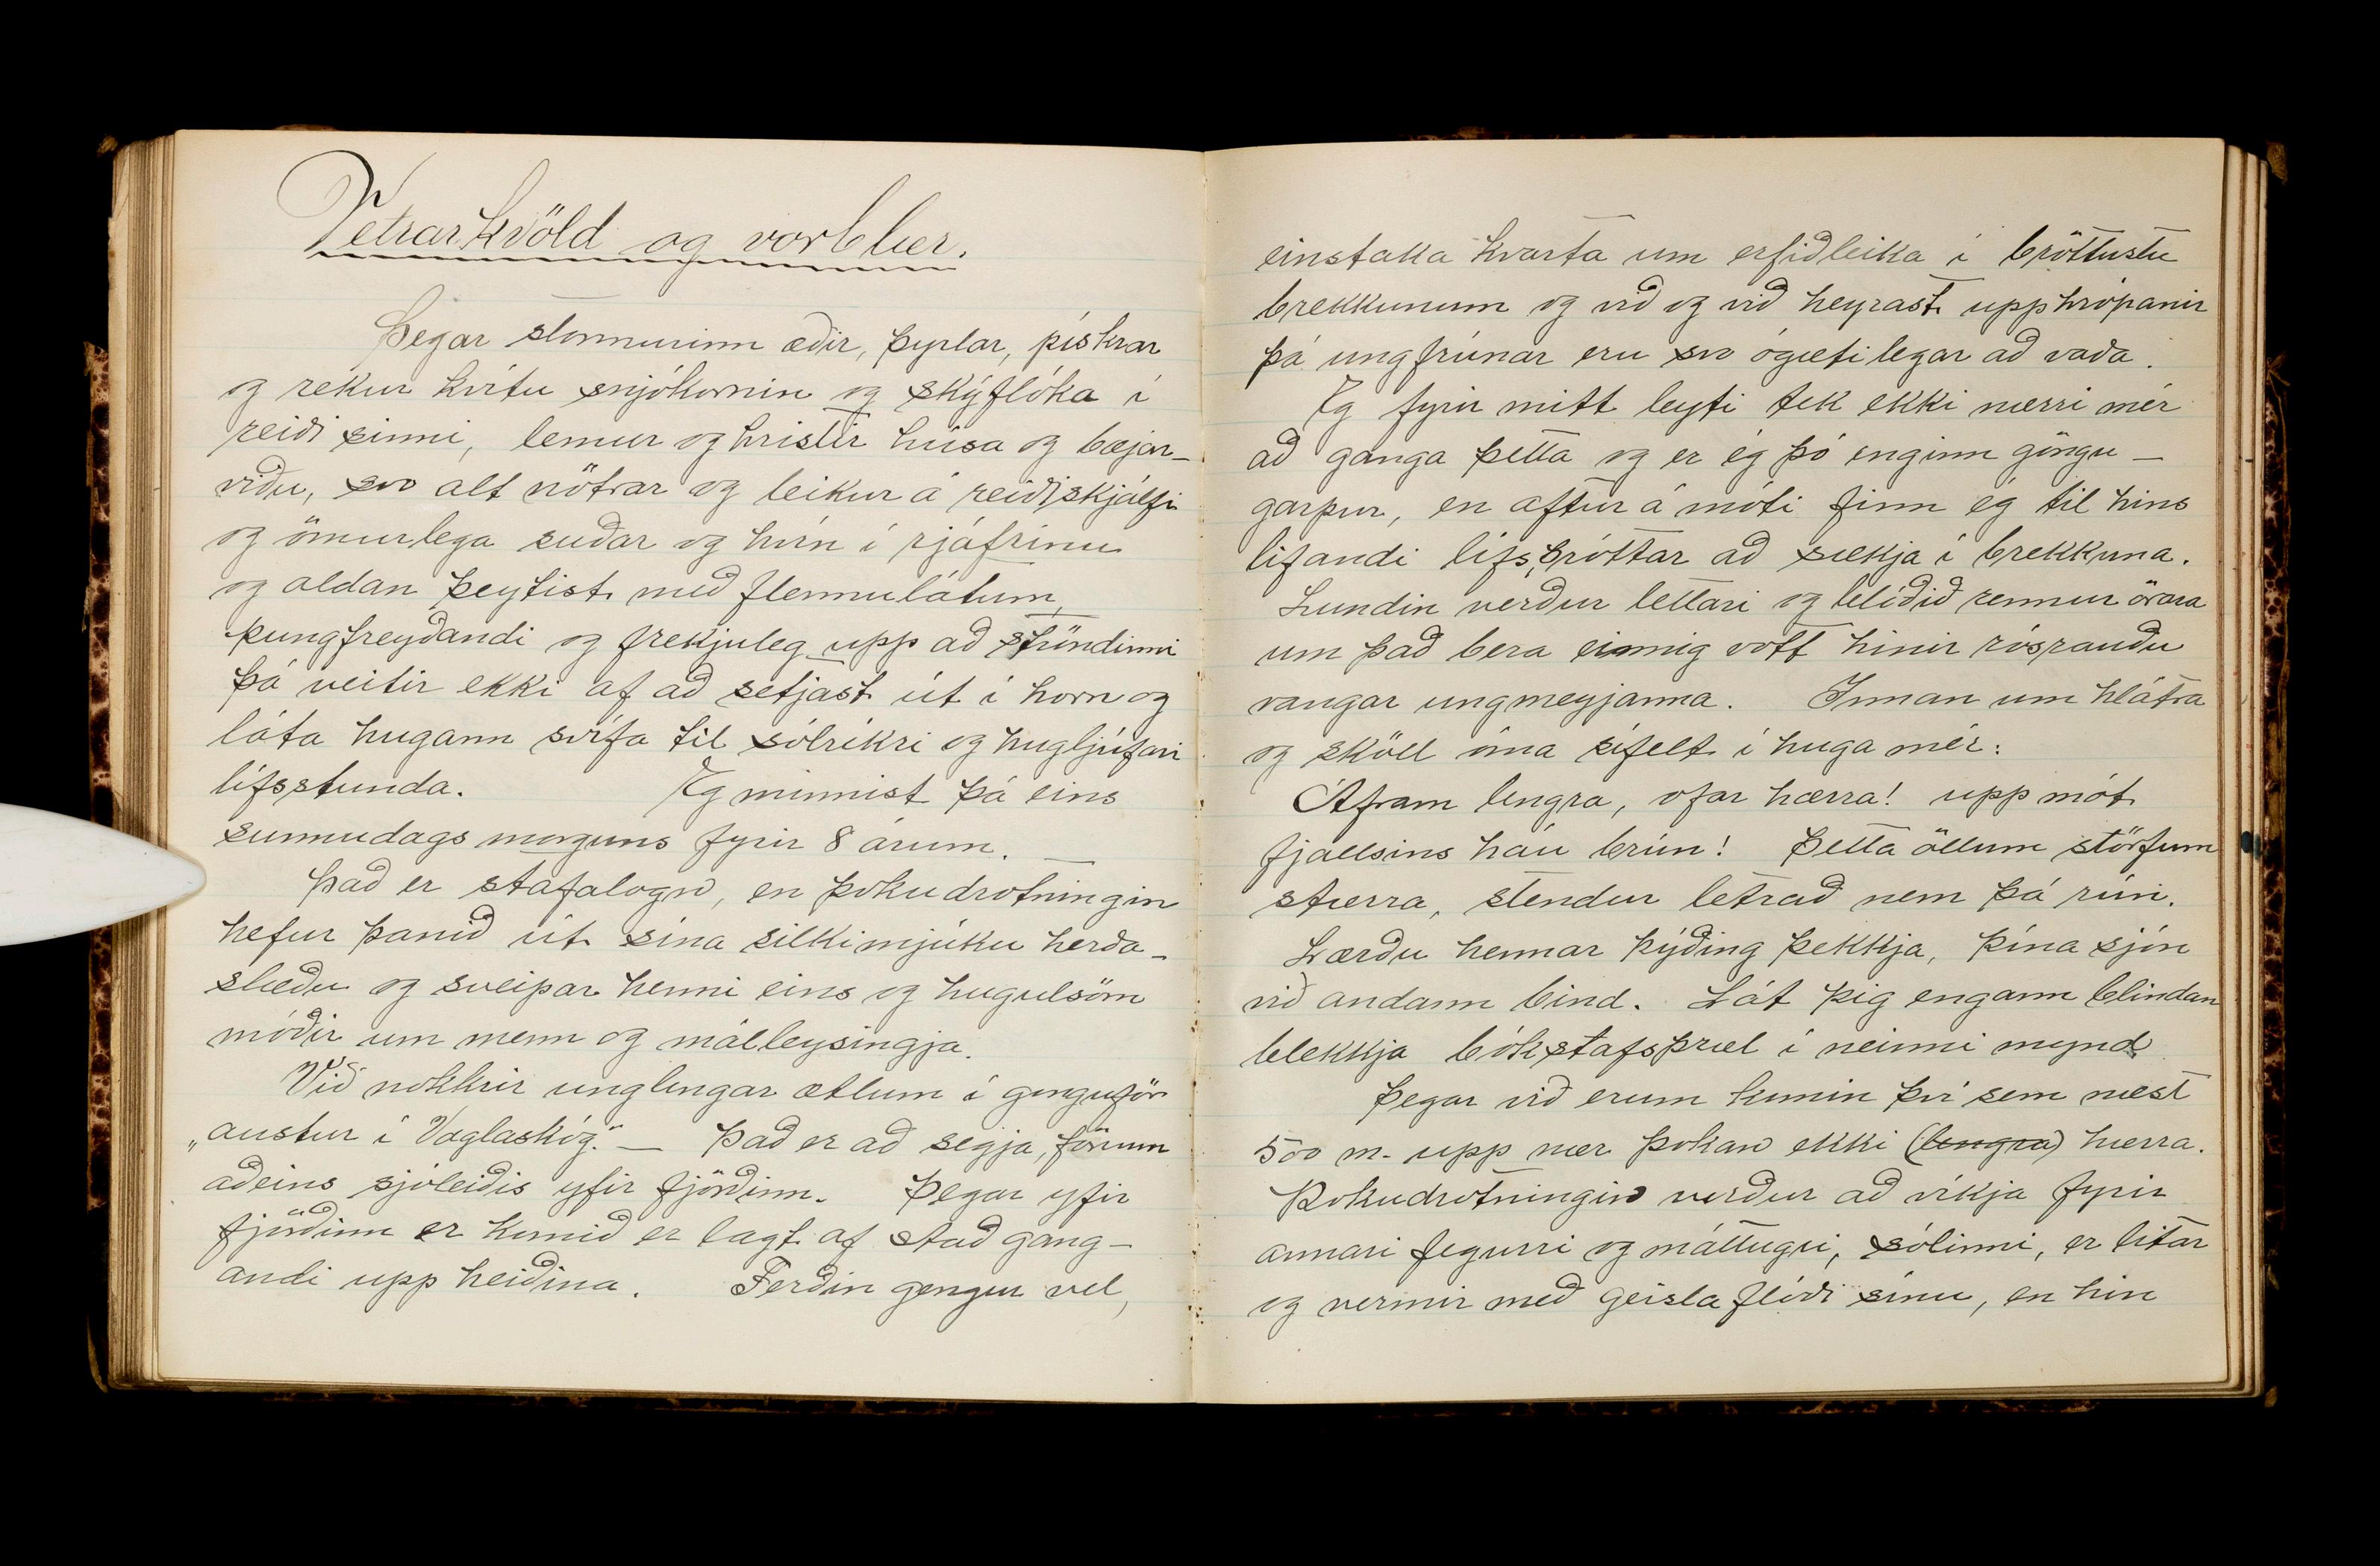 Vetrarkvöld og vorblær.
Þegar stormurinn æðir, þyrlar, pískrar
og rekur hvítu snjókornin og skýflóka í
reiði sinni, lemur og hristir húsa og bæjar-
viðu, svo alt nötrar og leikur á reiðiskjálfi
og ömurlega suðar og hvín í rjáfrinu
og aldan þeytist með flennulátum,
þungfreyðandi og frekjuleg upp að ströndinni
þá veitir ekki af að setjast út í horn og
láta hugann svífa til sólríkri og hugljúfari
lífsstunda. Eg minnist þá eins
sunnudags morguns fyrir 8 árum.
Það er stafalogn, en þokudrotningin
hefur þanið út sína silkimjúku herða-
slæðu og sveipar henni eins og hugulsöm
móðir um menn og málleysingja.
Við nokkrir unglingar ætlum í gönguför
„austur í Vaglaskóg." — Það er að segja, förum
aðeins sjóleiðis yfir fjörðinn. Þegar yfir
fjörðinn er komið er lagt af stað gang-
andi upp heiðina. Ferðin gengur vel,
einstaka kvarta um erfiðleika í bröttustu
brekkunum og við og við heyrast upphrópanir
þá ungfrúnar eru svo ógætilegar að vaða.
Eg fyrir mitt leyti tek ekki nærri mér
að ganga þetta og er ég þó enginn göngu-
garpur, en aftur á móti finn ég til hins
lifandi lífsþróttar að sækja í brekkuna.
Lundin verður léttari og blóðið rennur örara
um það bera einnig vott hinir rósrauðu
vangar ungmeyjanna. Innan um hlátra
og sköll óma sífelt í huga mér:
Áfram lengra, ofar hærra! upp mót
fjallsins háu brún! Þetta öllum störfum
stærra, stendur letrað nem þá rún.
Lærðu hennar þýðing þekkja, þína sjón
við andann bind. Lát þig engann blindan
blekkja bókstafsþræl í neinni mynd
Þegar við erum komin því sem næst
500 m. upp nær þokan ekki (lengra) hærra.
Þokudrotningin verður að víkja fyrir
annari fegurri og máttugri, sólinni, er litar
og vermir með geislaflóði sínu, en hin